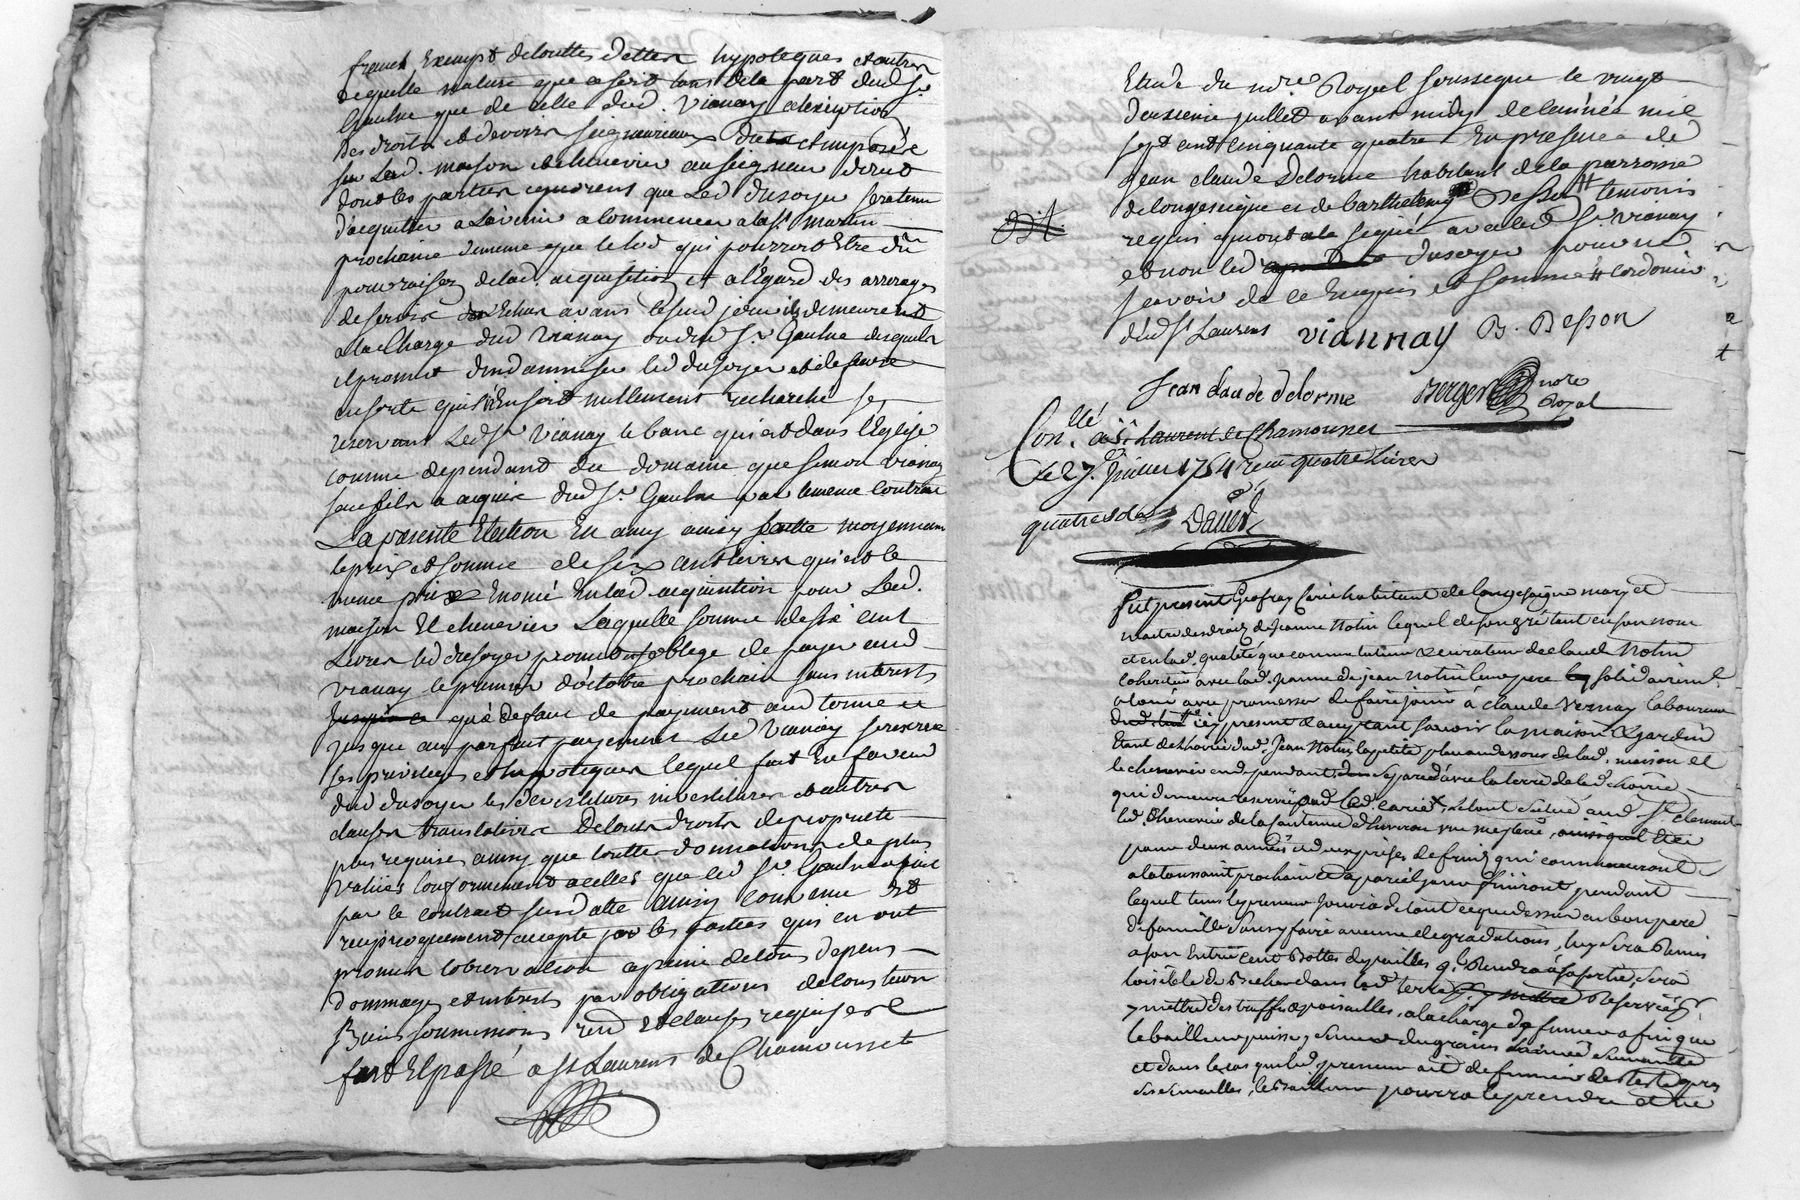 franch Exempt de touttes dettes hypoteques et autres
de quelle nature que ce soit tant de la part dud Sr
Gaulne que de celle dud. Vianay a l'exeption
des droits et devoirs seigneuriaux et imposée
sur Lad. maison et chenevier au seigneur dirud
dont les parties ignorent que Led dusoyer sera tenu
d'acquitter a L'avenir a commencer a la St martin
prochaine de meme que le lod qui pourroit Etre du
pour raison de lad. acquisition et a l'Egard des arrerages
de servis Echus avant cesud jour ils demeurent
a la Charge dud Vianay ou dud Sr. Gaulne desquels
il promet d'indamniser led dusoyer et de faire
en sorte qu'il n'en soit nullement recherché se
reservant Led Sr Vianay le banc qui est dans l'Eglise
comme dependant du domaine que Simon Vianay
son fils a acquis dud Sr. Gaulne par le meme contrat
La presente Election En amy ainsy faitte moyennant
le prix et somme de six cent livres qui est le
meme prix Enoncé En lad acquisition pour Lad.
maison Et chenevier Laquelle somme de six cent
Livres led dusoyer promet et s'oblege de payer aud
Vianay le premier d'octobre prochain sans interest
jusqu'a ce qu'a defaut de payement aud terme et
jusque au parfait payement Led Vianay se reserve
ses privileges et hipoteques lequel fait En faveur
dud dusoyer les devestitures investitures et autres
clauses translatives de touts droits de proprieté
plus requises ainsy que touttes donnations de plus
values conformement a celles que led Sr. Gaulne a fait
par le contract susd atte ainsy convenu et
reciproquement accepté par les parties qui en ont
promis l'observation a peine de tous depens
dommages et interests par obligations de tous leurs
Biens soumissions rend et clauses requises
fait Et passé a St Laurens de Chamousset
Etude du nore. Royal soussigné le vingt
deuxieme juillet avant midy de l'année mil
sept cent cinquante quatre En presence de
Jean claude Delorme habitant de la parroisse
de longessaigne et de barthelemy Besson # temoins
requis qui ont signé avec led Sr. Vianay
et non led dusoyer pour ne
scavoir de ce Enquis et sommé # cordonier
dud St Laurens viannay B. Besson
Jean claude delorme Berger nore
Royal
Conllé a St Laurent de Chamousset
Le 27e. Juillet 1754 recu quatre Livres
quatre sols
Fut present Geofray Carie habitant de longessaigne mary et
maitre des droits de Jeanne Notin lequel de son gré tant en son nom
et en lad. qualité que comme tuteur & curateur de claude Notin
coheritier avec lad. Jeanne de jean Notin leur pere solidairement
a loué avec promesse de faire jouir à claude Vernay laboureur
icy present & acceptant savoir la maison & jardin
Etant de L'hoirie dud. Jean Notin la petite place au dessous de lad. maison et
le chenevier en dependant separé d'avec la terre de lad. hoirie
qui demeure reservée aud. Carie, le tout situé aud. St clement
led. Chenevier de la contenue d'environ une mesterée
pour deux années & deux prises de fruits qui commenceront
a la toussaint prochaine & a pareil jour finiront pendant
lequel tems le preneur jouira de tout ce que dessus en bon pere
de famille sans y faire aucune degradations, luy sera Remis
a son Entrée cent Bottes de pailles ql. Rendra à sa sortie, sera
loisible de Becher dans lad. terre Reservée &
y mettre des truffes & poisailles, a la charge de fumer afin que
le bailleur puisse y semer du grain
et dans le cas que led. preneur ait de fumier de reste apres
ses semailles, le Bailleur pourra le prendre et ne